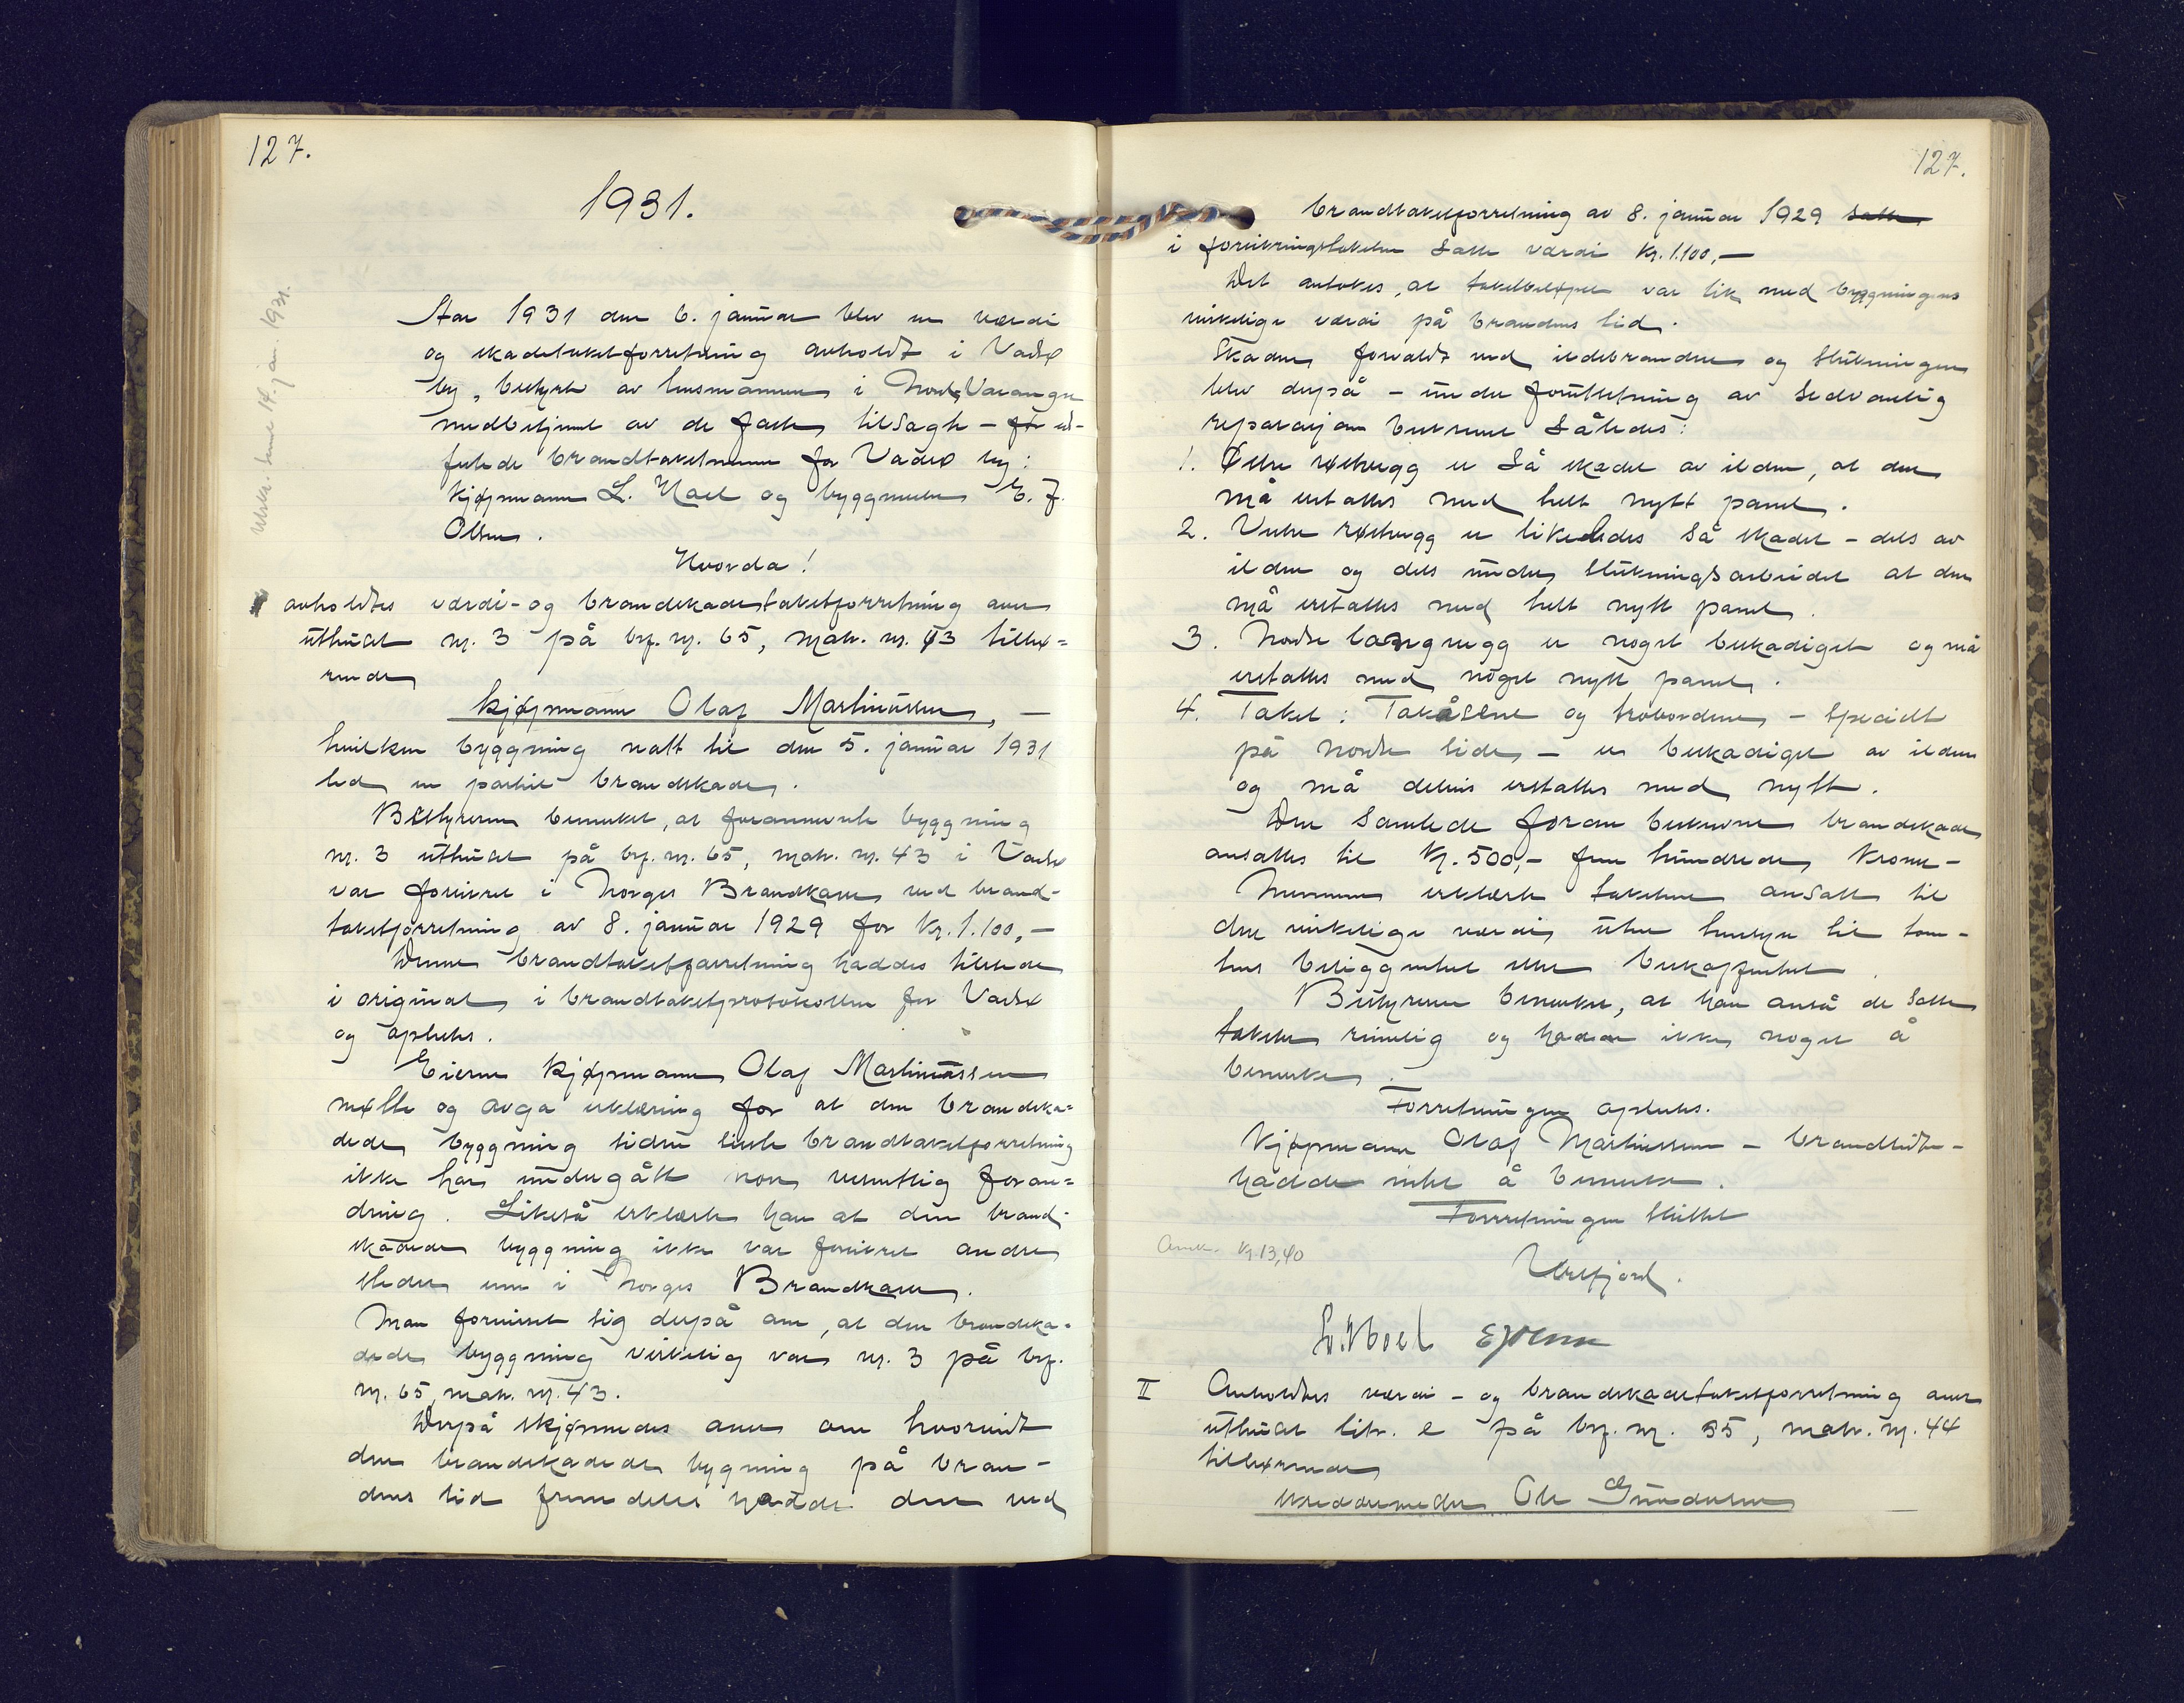 127.
1931.
Utskr. sendt 14. jan. 1931.
Aar 1931 den 6. januar blev en værdi
og skadetakstforretning avholdt i Vadsø
by, bestyrt av lensmannen i Nord-Varanger
medbetjent av de faste tilsagte -
brandtakstmenn for Vadsø by:
kjøpmann L. Noel og byggmester E. J.
Olsen.
Hvorda!
avholdtes værdi- og brandskadetakstforretning over
uthuset nr. 3 på brf. nr. 65, matr. nr. 43 tilhø=
rende
kjøpmann Olaf Martinussen, —
hvilken byggning natt til den 5. januar 1931
led en partiel brandskade.
Bestyreren bemerket, at forannevnte byggning
nr. 3 uthuset på brf. nr. 65, matr. nr. 43 i Vadsø
var forsikret i Norges Brandkasse ved brand-
takstforretning av 8. januar 1929 for kr. 1.100,—
Denne brandtakstforretning haddes tilstede
i original i brandtakstprotokollen for Vadsø
og oplestes.
Eieren kjøpmann Olaf Martinussen
møtte og avga erklæring for at den brandska=
dede byggning siden siste brandtakstforretning
ikke har undergått noen vesentlig foran=
dring. Likeså erklærte han at den brand-
skadede byggning ikke var forsikret andre
steder enn i Norges Brandkasse.
Man forvisset sig derpå om, at den brandska=
dede byggning virkelig var nr. 3 på brf.
nr. 65, matr. nr. 43.
Derpå skjønnedes over om hvorvidt
den brandskadede bygning på bran-
dens tid fremdeles hadde den ved
127.
brandtakstforretning av 8. januar 1929 satte
i forsikringstaksten satte værdi kr. 1.100,—
Det antokes, at takstbeløpet var lik med byggningens
virkelige værdi på brandens tid.
Skaden forvoldt ved ildebranden og slukningen
blev derpå - under forutsetning av sedvanlig
reparasjon beskrevet således:
1. Østre røstvegg er så skadet av ilden, at den
må erstattes med helt nytt panel.
2. Vestre røstvegg er likeledes så skadet - dels av
ilden og dels under slukningsarbeidet at den
må erstattes med helt nytt panel.
3. Nordre langvegg er noget beskadiget og må
erstattes med noget nytt panel.
4. Taket: Takåsene og trobordene - specielt
på nordre side - er beskadiget av ilden
og må delvis erstattes med nytt.
Den samlede foran beskrevne brandskade
ansattes til kr. 500,- fem hundrede kroner -
Mennene erklærte taksten ansatt til
den virkelige værdi uten hensyn til tom-
tens beliggenhet eller beskaffenhet.
Bestyreren bemerket, at han anså de satte
takster rimelig og hadde ikke noget å
bemerke.
Forretningen oplestes.
Kjøpmann Olaf Martinussen - brandlidte -
hadde intet å bemerke.
Forretningen sluttet
kr. 13,40
Vestfjord.
L. Noel E J Olsen
II Avholdtes værdi- og brandskadetakstforretning over
uthuset litr. e på brf. nr. 35, matr. nr. 44
tilhørende
skreddermester Ole Gundersen —